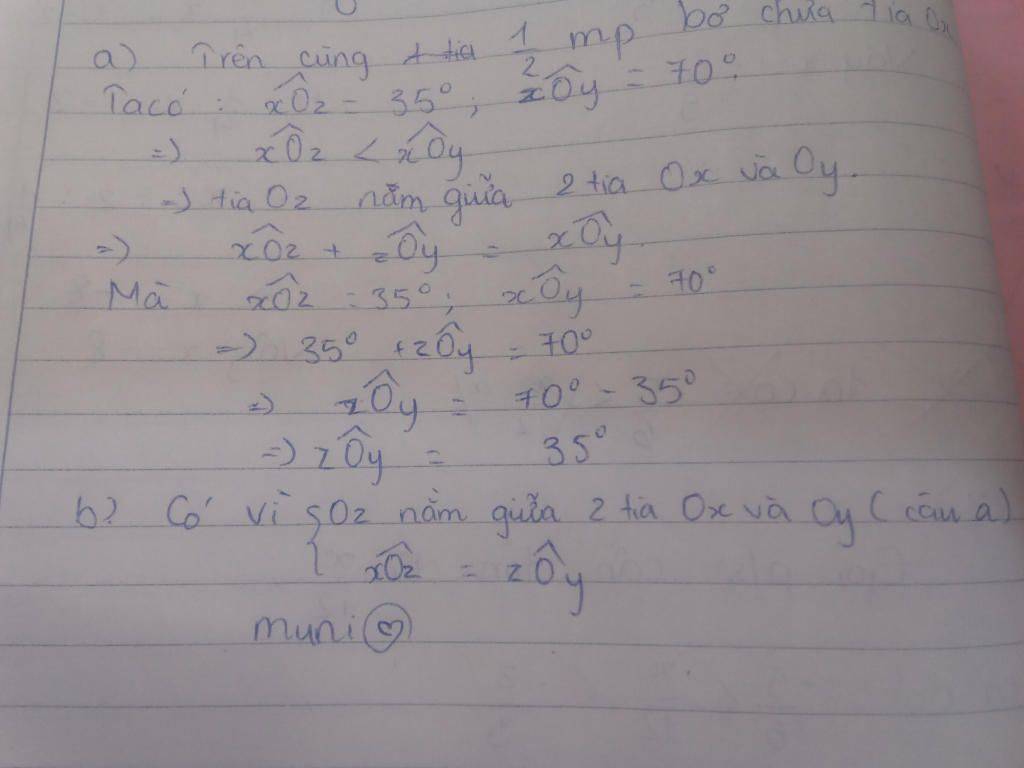 a) Trên cùng 1 tia 1/2 mp bờ chứa tia Ox
Ta có : xÔz = 35° ; xÔy = 70°.
=) xÔz < xÔy
=) tia Oz nằm giữa 2 tia Ox và Oy.
=) xÔz + zÔy = xÔy.
Mà xÔz = 35° ; xÔy = 70°
=) 35° + zÔy = 70°
=) zÔy = 70° - 35°
=) zÔy = 35°
b) Có vì { Oz nằm giữa 2 tia Ox và Oy ( câu a)
xÔz = zÔy
muni